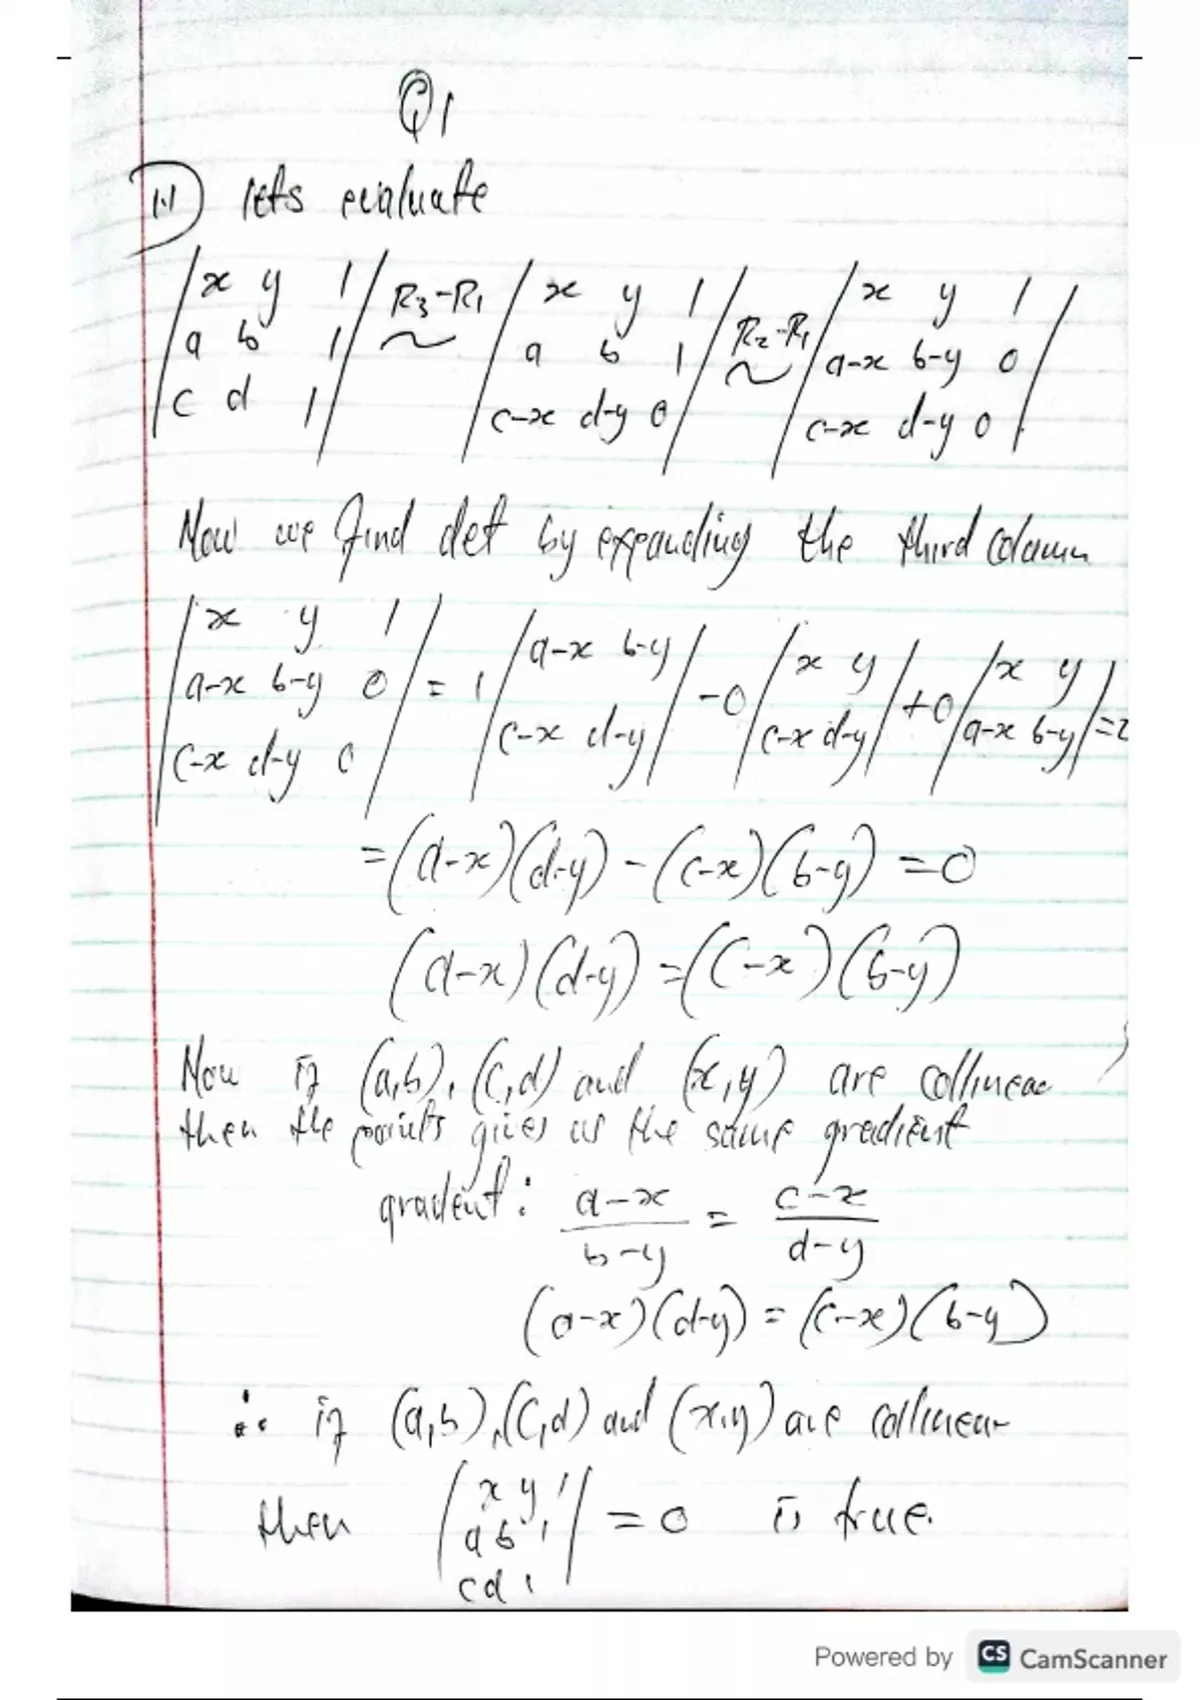 Q1
1.1) lets evaluate
| x y 1 | R3-R1 | x y 1 | R2-R1 | x y 1 |
| a b 1 | ~ | a b 1 | ~ | a-x b-y 0 |
| c d 1 | | c-x d-y 0 | | c-x d-y 0 |
Now we find det by expanding the third column
| x y 1 |
| a-x b-y 0 | = 1 | a-x b-y | -0 | x y | +0 | x y |
| c-x d-y 0 | | c-x d-y | | c-x d-y | | a-x b-y | =
= (a-x)(d-y) - (c-x)(b-y) = 0
(a-x)(d-y) = (c-x)(b-y)
Now if (a,b), (c,d) and (x,y) are collinear
then the points gives us the same gradient
gradient: a-x / b-y = c-x / d-y
(a-x)(d-y) = (c-x)(b-y)
∴ if (a,b), (c,d) and (x,y) are collinear
then | x y 1 | = 0 is true.
| a b 1 |
c d 1
Powered by CS CamScanner